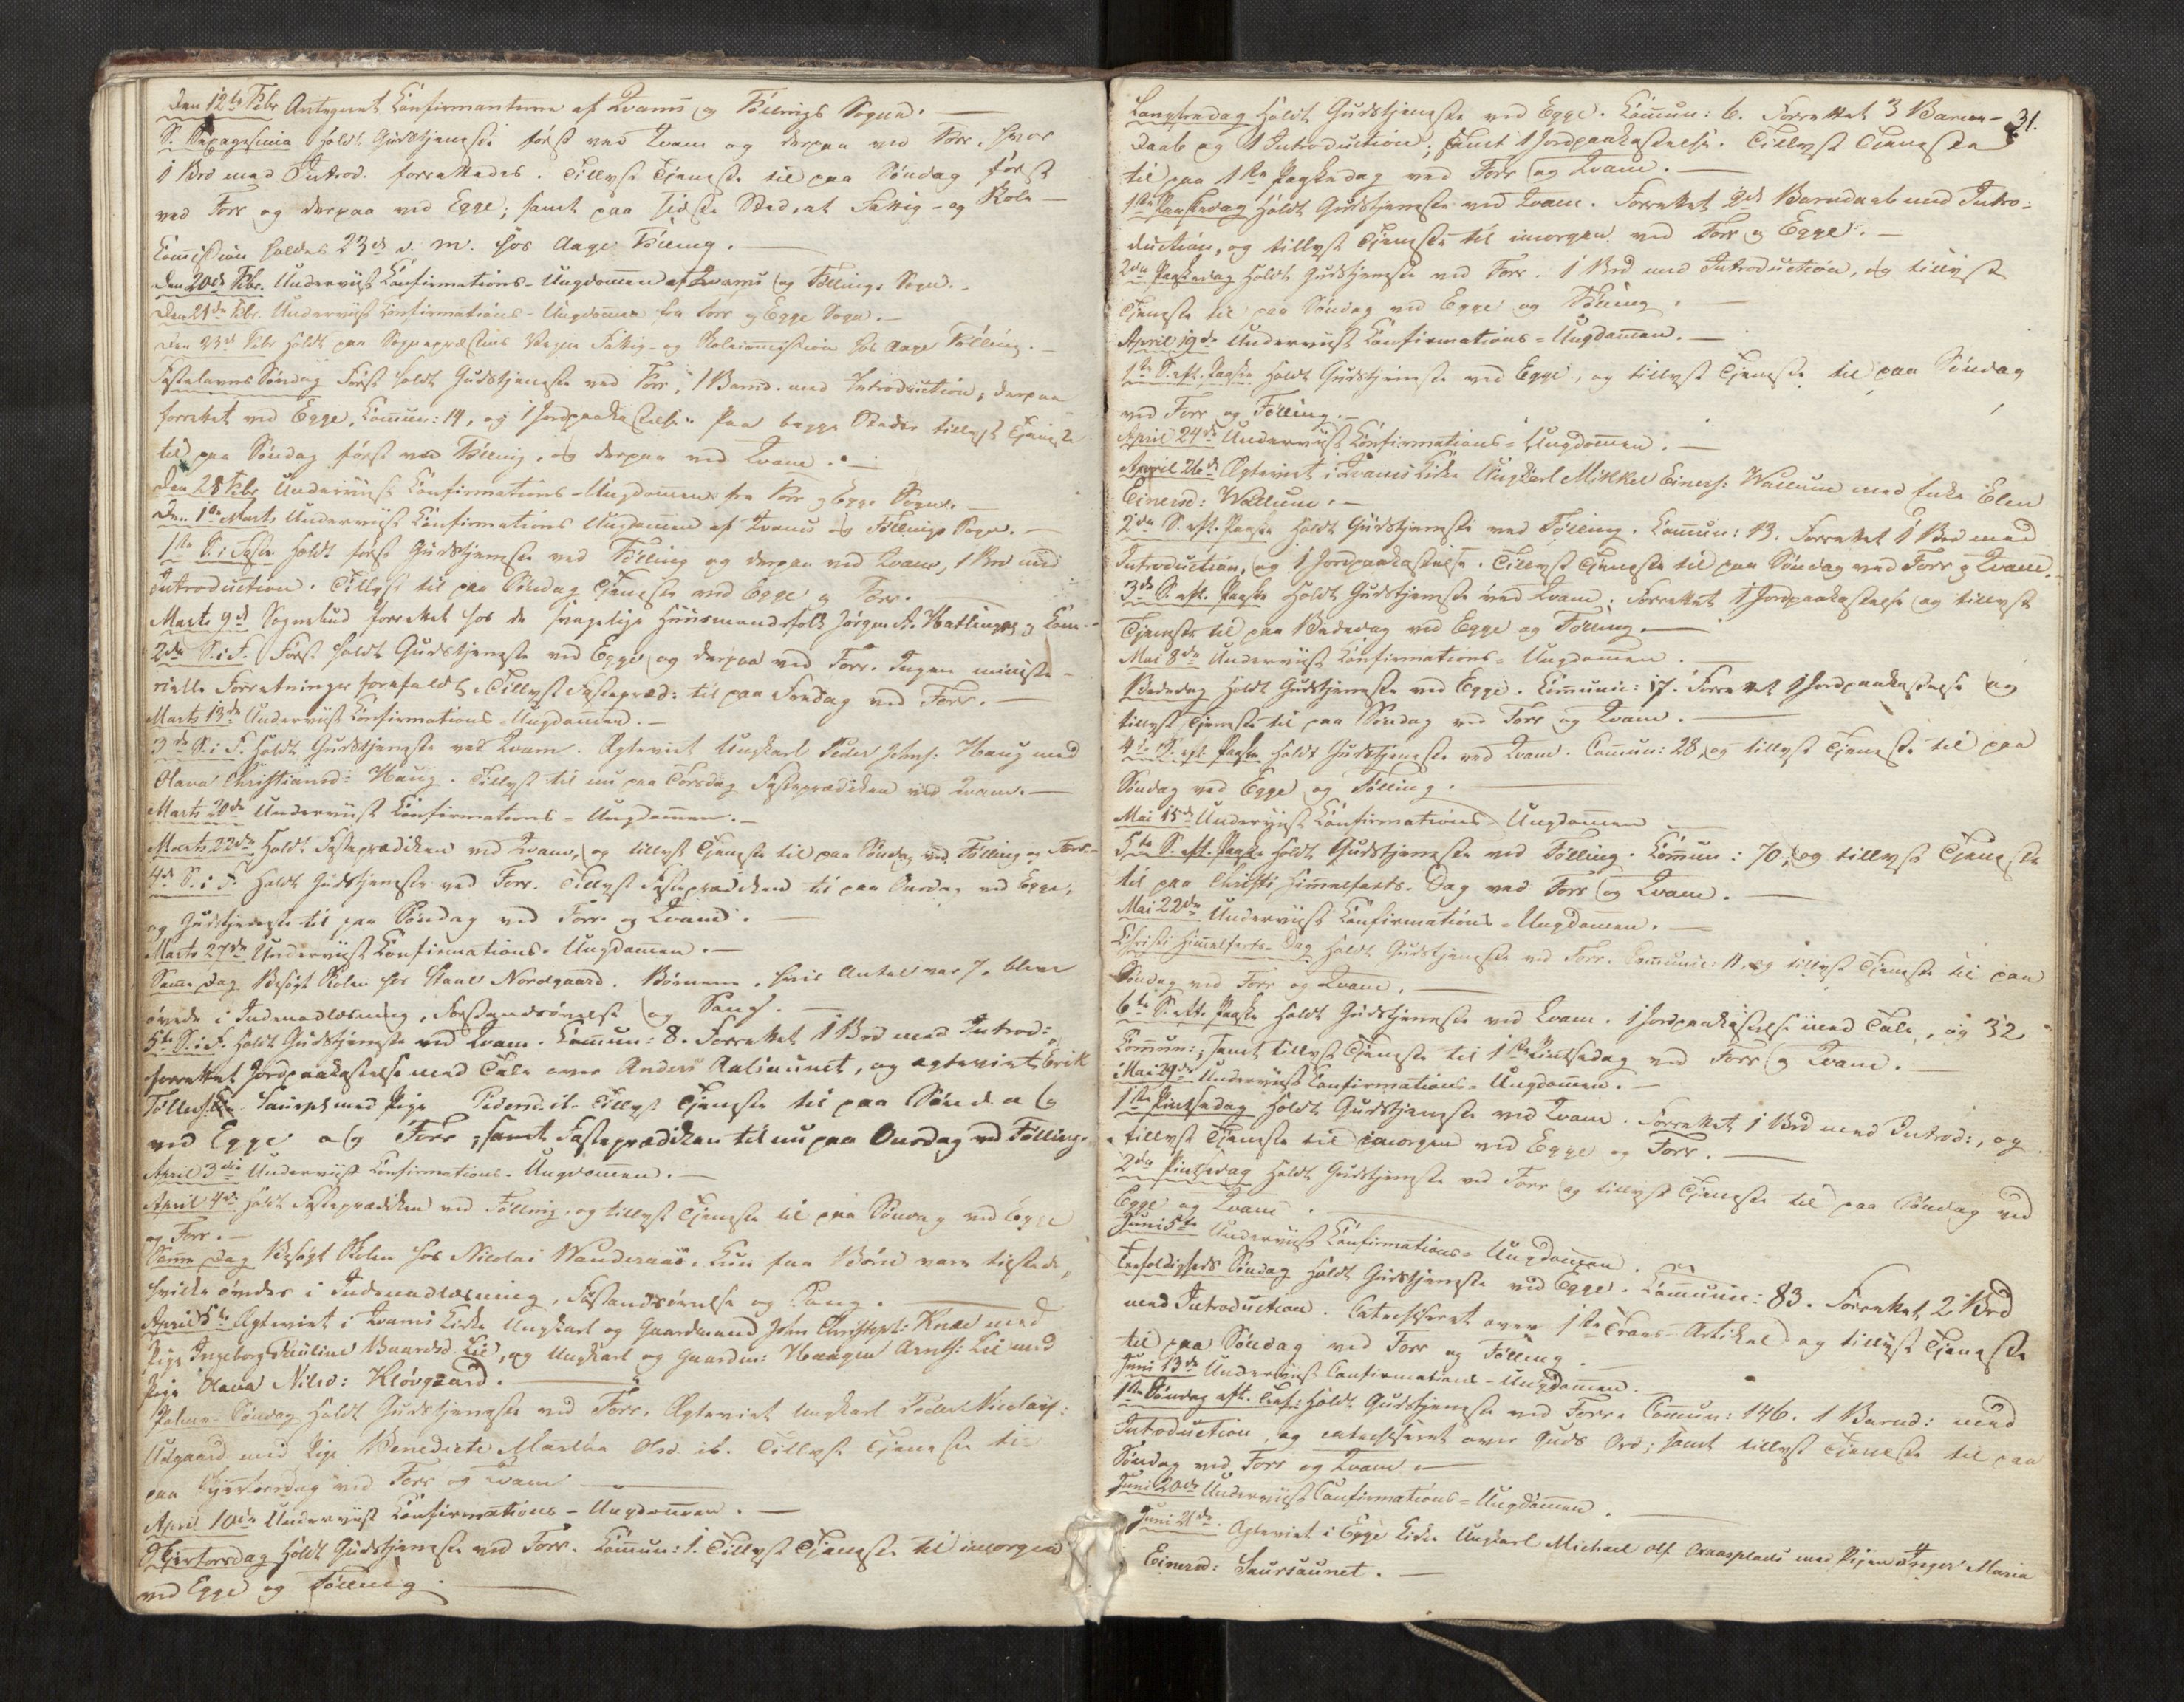 Den 12te Febr Antegnet Konfirmanterne af Qvams og Föllings Sogne. —
S. Sexagesima Holdt Gudstjeneste först ved Qvam og derpaa ved For, hvor
1 Brd med Introd. forrettedes. Tillyst Tjeneste til paa Söndag först
ved For og derpaa ved Egge; samt paa sidste Sted, at Fattig- og Skole-
Commission holdes 23de d. M. hos Aage Fölling. —
Den 20de Febr. Underviist Konfirmations-Ungdommen af Qvams og Föllings Sogn. —
Den 21de Febr. Underviist Konfirmations-Ungdommen fra For og Egge Sogn. —
Den 23de Febr Holdt paa Sognepræstens Vegne Fattig- og Skolecommission hos Aage Fölling. —
Fastelavns Söndag Först holdt Gudstjeneste ved For, 1 Barnd. med Introduction; derpaa
forrettet ved Egge, Commun: 14, og 1 Jordpaakastelse. Paa begge Steder tillyst Tjeneste
til paa Söndag först ved Fölling, og derpaa ved Qvam. —
Den 28 Febr Underviist Konfirmations-Ungdommen fra For og Egge Sogne. —
Den 1ste Marts Underviist Konfirmations Ungdommen af Qvams og Föllings Sogn. —
1ste S. i Faste Holdt först Gudstjeneste ved Fölling og derpaa ved Qvam, 1 Brd med
Introduction. Tillyst til paa Söndag Tjeneste ved Egge og For. —
Marts 9de Sognebud forrettet hos de svagelige Huusmandsfolk Jörgen A. Hatlinges og Kone. —
2den S. i F. Först holdt Gudstjeneste ved Egge og derpaa ved For. Ingen ministe-
rielle Forretninger forefaldt. Tillyst Fastepræd: til paa Fredag ved For. —
Marts 13de Underviist Konfirmations-Ungdommen. —
3die S. i F. Holdt Gudstjeneste ved Qvam. Ægteviet Ungkarl Peder Johns: Haug med
Olava Christiansd: Haug. Tillyst til nu paa Torsdag Fasteprædiken ved Qvam. —
Marts 20de Underviist Konfirmations-Ungdommen. —
Marts 22de Holdt Fasteprædiken ved Qvam, og tillyst Tjeneste til paa Söndag ved Fölling og For. —
4de S. i F. Holdt Gudstjeneste ved For. Tillyst Fasteprædiken til paa Onsdag ved Egge,
og Gudstjeneste til paa Söndag ved For og Qvam. —
Marts 27de Underviist Konfirmations-Ungdommen. —
Samme Dag Besögt Skolen hos Nordgaard. Börnene, hvis Antal var 7, bleve
övede i Indenadlæsning, Forstandsövelse og Sang. —
5te S. i F. Holdt Gudstjeneste ved Qvam. Commun: 8. Forrettet 1 Brd med Introd:,
forrettet Jordpaakastelse med Tale over Anders Aalsaunet, og ægteviet Erik
med Pige Pedersd. ib. Tillyst Tjeneste til paa Söndag
ved Egge og For, samt Fasteprædiken til nu paa Onsdag ved Fölling.
April 3die Underviist Konfirmations-Ungdommen. —
April 4de Holdt Fasteprædiken ved Fölling, og tillyst Tjeneste til paa Söndag ved Egge
og For. —
Samme Dag Besögt Skolen hos Nicolai Wanderaas. Kun faa Börn vare tilstede,
hvilke övedes i Indenadlæsning, Forstandsövelse og Sang. —
April 5te Ægteviet i Qvams Kirke Ungkarl og Gaardmand John Christoph: Knæe med
Pige Ingeborg Pauline Baardsd. Lie, og Ungkarl og Gaardm: Haagen Arnts: Lie med
Pige Olava Nilsd: Klövgaard. —
Palme-Söndag Holdt Gudstjeneste ved For. Ægteviet Ungkarl Peder Nicolays:
Udgaard med Pige Benedicte Martha Olsd. ib. Tillyst Tjeneste til
paa Skjertorsdag ved For og Qvam —
April 10de Underviist Konfirmations-Ungdommen. —
Skjertorsdag Holdt Gudstjeneste ved For. Commun: 1. Tillyst Tjeneste til imorgen
ved Egge og Fölling. —
31.
Langfredag Holdt Gudstjeneste ved Egge. Commun: 6. Forrettet 3 Barne-
Daab og 1 Introduction; samt 1 Jordpaakastelse. Tillyst Tjeneste
til paa 1ste Paaskedag ved For og Qvam. —
1ste Paaskedag Holdt Gudstjeneste ved Qvam. Forrettet 2de Barnedaab med Intro-
duction, og tillyst Tjeneste til imorgen ved For og Egge. —
2den Paaskedag Holdt Gudstjeneste ved For. 1 Brd med Introduction, og tillyst
Tjeneste til paa Söndag ved Egge og Fölling. —
April 19de Underviist Konfirmations-Ungdommen. —
1ste S. eft. Paaske Holdt Gudstjeneste ved Egge, og tillyst Tjeneste til paa Söndag
ved For og Fölling. —
April 24de Underviist Konfirmations-Ungdommen. —
April 26de Ægteviet i Qvams Kirke Ungkarl Mikkel Einers: Wallum med Enke Elen
Einersd: Wallum. —
2den S. eft. Paaske Holdt Gudstjeneste ved Fölling. Commun: 13. Forrettet 1 Brd med
Introduction, og 1 Jordpaakastelse. Tillyst Tjeneste til paa Söndag ved For og Qvam. —
3die S. eft. Paaske Holdt Gudstjeneste ved Qvam. Forrettet 1 Jordpaakastelse og tillyst
Tjeneste til paa Bededag ved Egge og Fölling. —
Mai 8de Underviist Konfirmations-Ungdommen. —
Bededag Holdt Gudstjeneste ved Egge. Communic: 17. Forrettet 1 Jordpaakastelse og
tillyst Tjeneste til paa Söndag ved For og Qvam. —
4de S. eft. Paaske Holdt Gudstjeneste ved Qvam. Commun: 28, og tillyst Tjeneste til paa
Söndag ved Egge og Fölling. —
Mai 15de Underviist Konfirmations-Ungdommen —
5te S. eft. Paaske Holdt Gudstjeneste ved Fölling. Commun: 70, og tillyst Tjeneste
til paa Christi Himmelfarts-Dag ved For og Qvam. —
Mai 22de Underviist Konfirmations-Ungdommen. —
Christi Himmelfarts-Dag Holdt Gudstjeneste ved For. Communic: 11, og tillyst Tjeneste til paa
Söndag ved For og Qvam. —
6te S. eft. Paaske Holdt Gudstjeneste ved Qvam. 1 Jordpaakastelse med Tale, og 32
Commun:, samt tillyst Tjeneste til 1ste Pintsedag ved For og Qvam. —
Mai 29de Underviist Konfirmations-Ungdommen. —
1ste Pintsedag Holdt Gudstjeneste ved Qvam. Forrettet 1 Brd med Introd:, og
tillyst Tjeneste til imorgen ved Egge og For. —
2den Pintsedag Holdt Gudstjeneste ved For og tillyst Tjeneste til paa Söndag ved
Egge og Qvam. —
Juni 5te Underviist Konfirmations-Ungdommen. —
Trefoldigheds Söndag Holdt Gudstjeneste ved Egge. Communic: 83. Forrettet 2 Brd
med Introduction. Catechiseret over 1ste Troes-Artikel og tillyst Tjeneste
til paa Söndag ved For og Fölling. —
Juni 13de Underviist Confirmations-Ungdommen. —
1ste Söndag eft. Tref: Holdt Gudstjeneste ved For. Commun: 146. 1 Barnd: med
Introduction, og catechiseret over Guds Ord; samt tillyst Tjeneste til paa
Söndag ved For og Qvam. —
Juni 20de Underviist Confirmations-Ungdommen. —
Juni 21de. Ægteviet i Egge Kirke Ungkarl Michael Ols. med Pigen Inger Maria
Einersd: Saursaunet. —